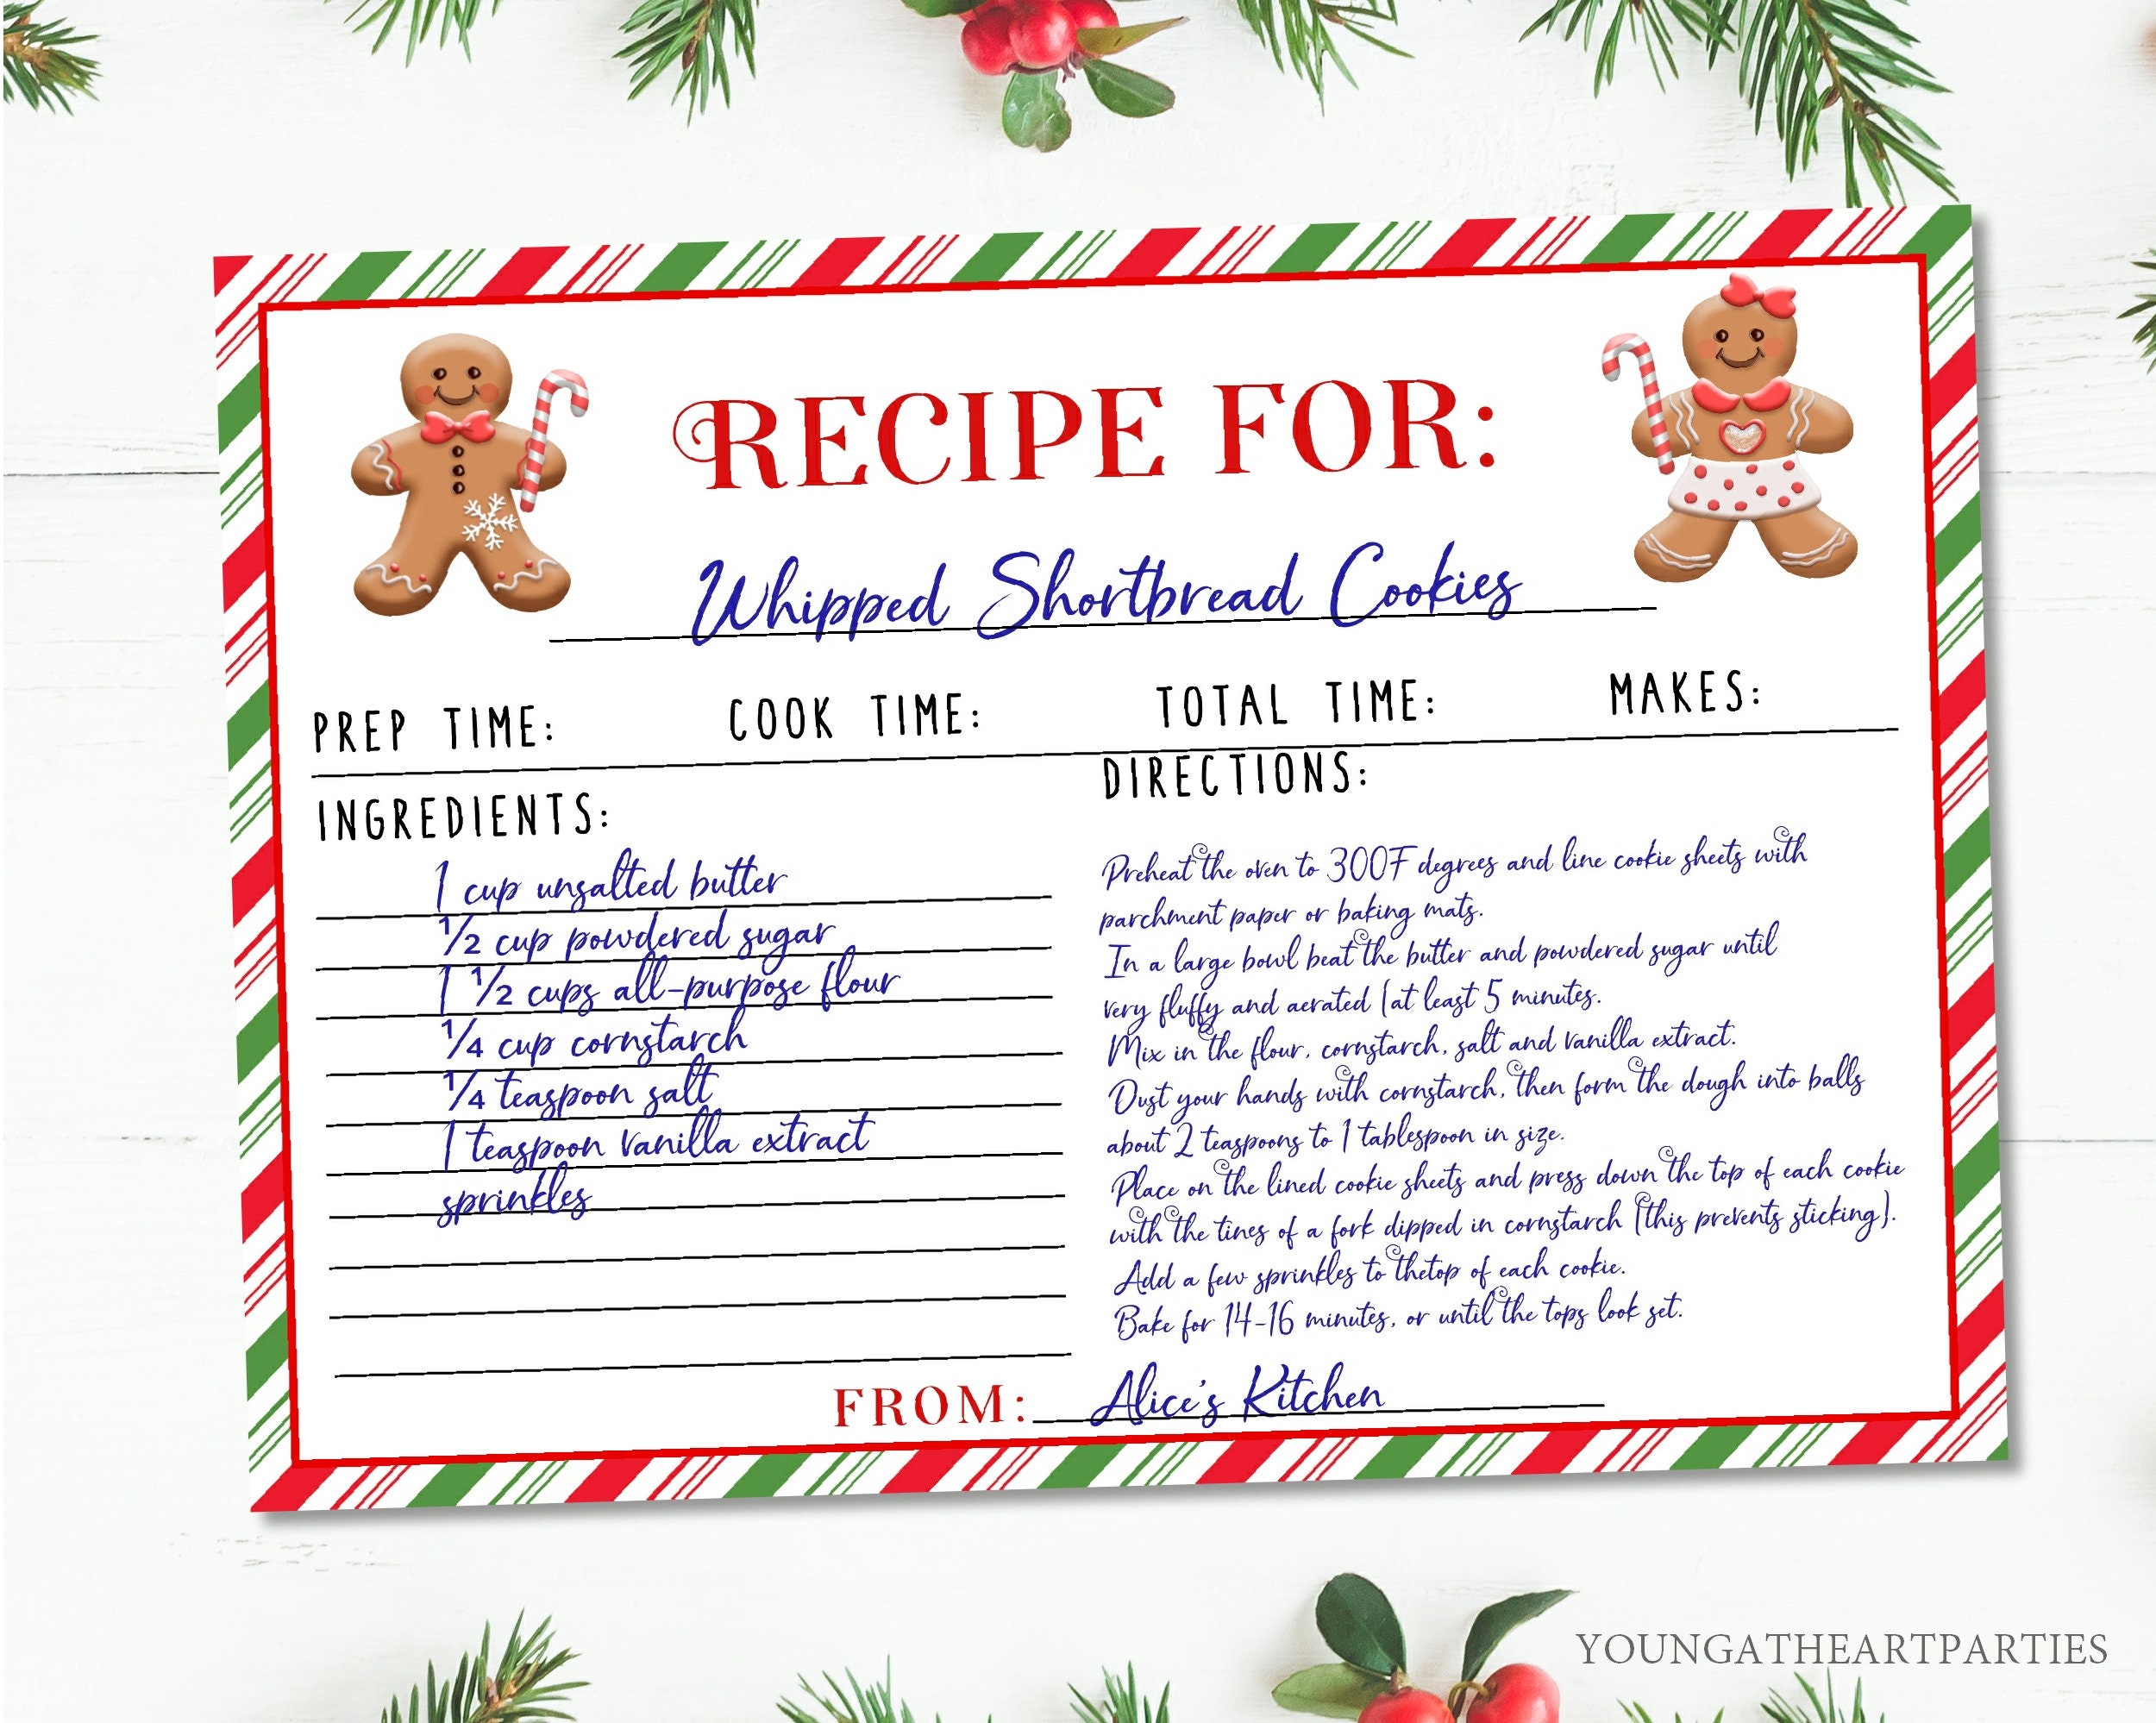 RECIPE FOR:
Whipped Shortbread Cookies
PREP TIME: COOK TIME: TOTAL TIME: MAKES:
INGREDIENTS:
1 cup unsalted butter
1/2 cup powdered sugar
1 1/2 cups all-purpose flour
1/4 cup cornstarch
1/4 teaspoon salt
1 teaspoon vanilla extract
sprinkles
DIRECTIONS:
Preheat the oven to 300F degrees and line cookie sheets with
parchment paper or baking mats.
In a large bowl beat the butter and powdered sugar until
very fluffy and aerated (at least 5 minutes.
Mix in the flour, cornstarch, salt and vanilla extract.
Dust your hands with cornstarch, then form the dough into balls
about 2 teaspoons to 1 tablespoon in size.
Place on the lined cookie sheets and press down the top of each cookie
with the tines of a fork dipped in cornstarch (this prevents sticking).
Add a few sprinkles to thetop of each cookie.
Bake for 14-16 minutes, or until the tops look set.
FROM: Alice's Kitchen
YOUNGATHEARTPARTIES